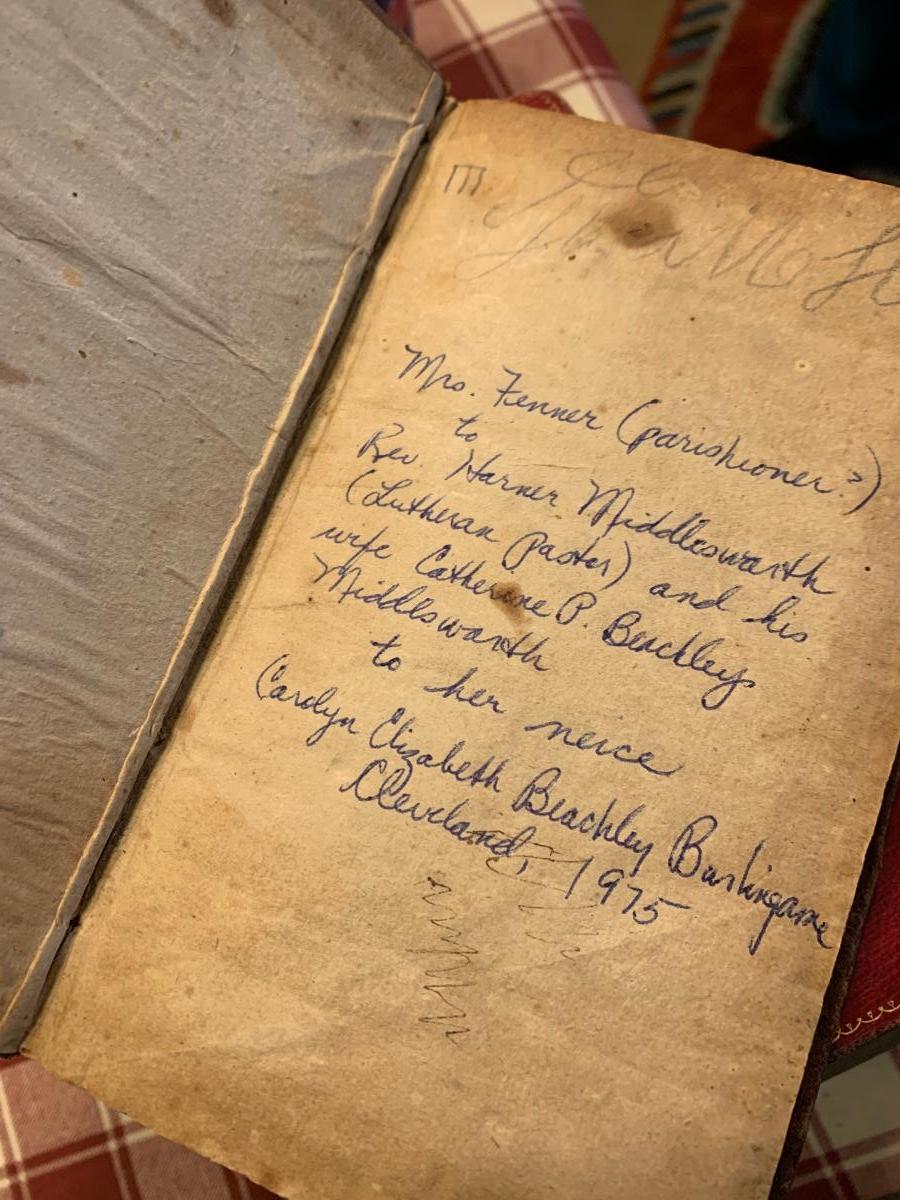 Mrs. Fenner (parishioner?)
to
Rev. Harner Middleswarth
(Lutheran Pastor) and his
wife Catherine P. Beachleys
Middleswarth
to her neice
Carolyn Elizabeth Beachley Burlingame
Cleveland, 1975